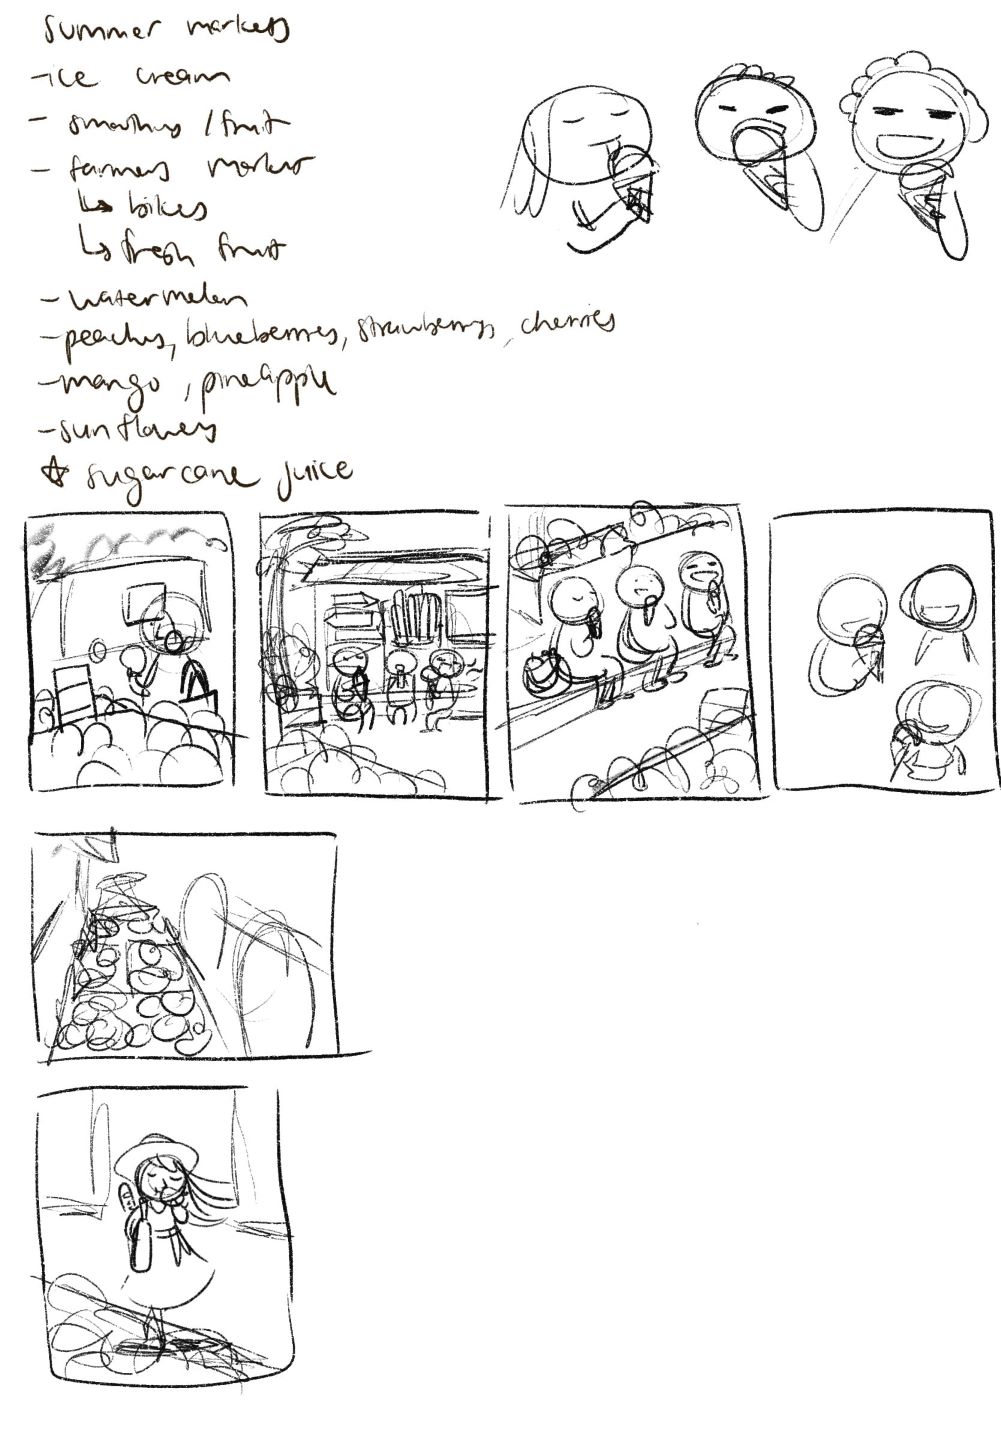 summer markets
-ice cream
- smoothies / fruit
- farmers market
↳ bikes
↳ fresh fruit
- watermelon
- peaches, blueberries, strawberrys, cherries
- mango, pineapple
- sunflowers
☆ sugarcane juice